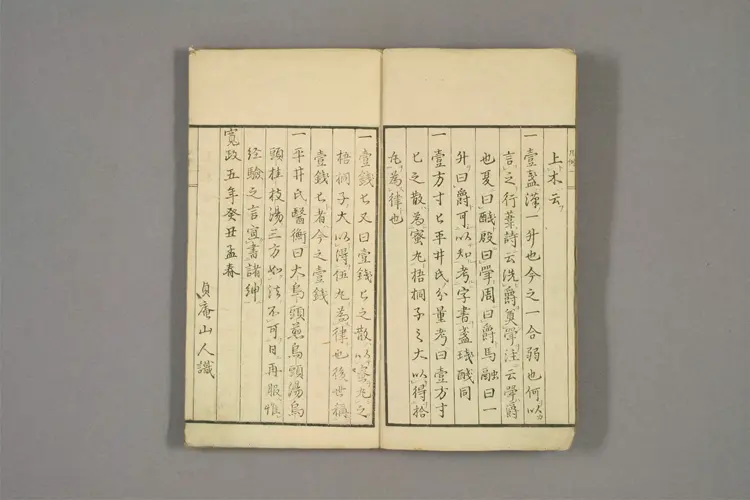 上木云
一壹盞漢一升也今之一合弱也何以
言之行葦詩云洗爵奠斝注云斝爵
也夏曰醆殷曰斝周曰爵馬融曰一
升曰爵可以知考字書盞琖醆同
一壹方寸匕平井氏分量考曰壹方寸
匕之散為蜜丸梧桐子之大以得拾
丸為律也
一壹錢匕又曰壹錢匕之散以蜜丸之
梧桐子大以得伍丸為律也後世稱
壹錢匕者今之壹錢
一平井氏醫衡曰大烏頭煎烏頭湯烏
頭桂枝湯三方如法不可日再服惟
經驗之言宜書諸紳
寬政五年癸丑孟春
貞庵山人識